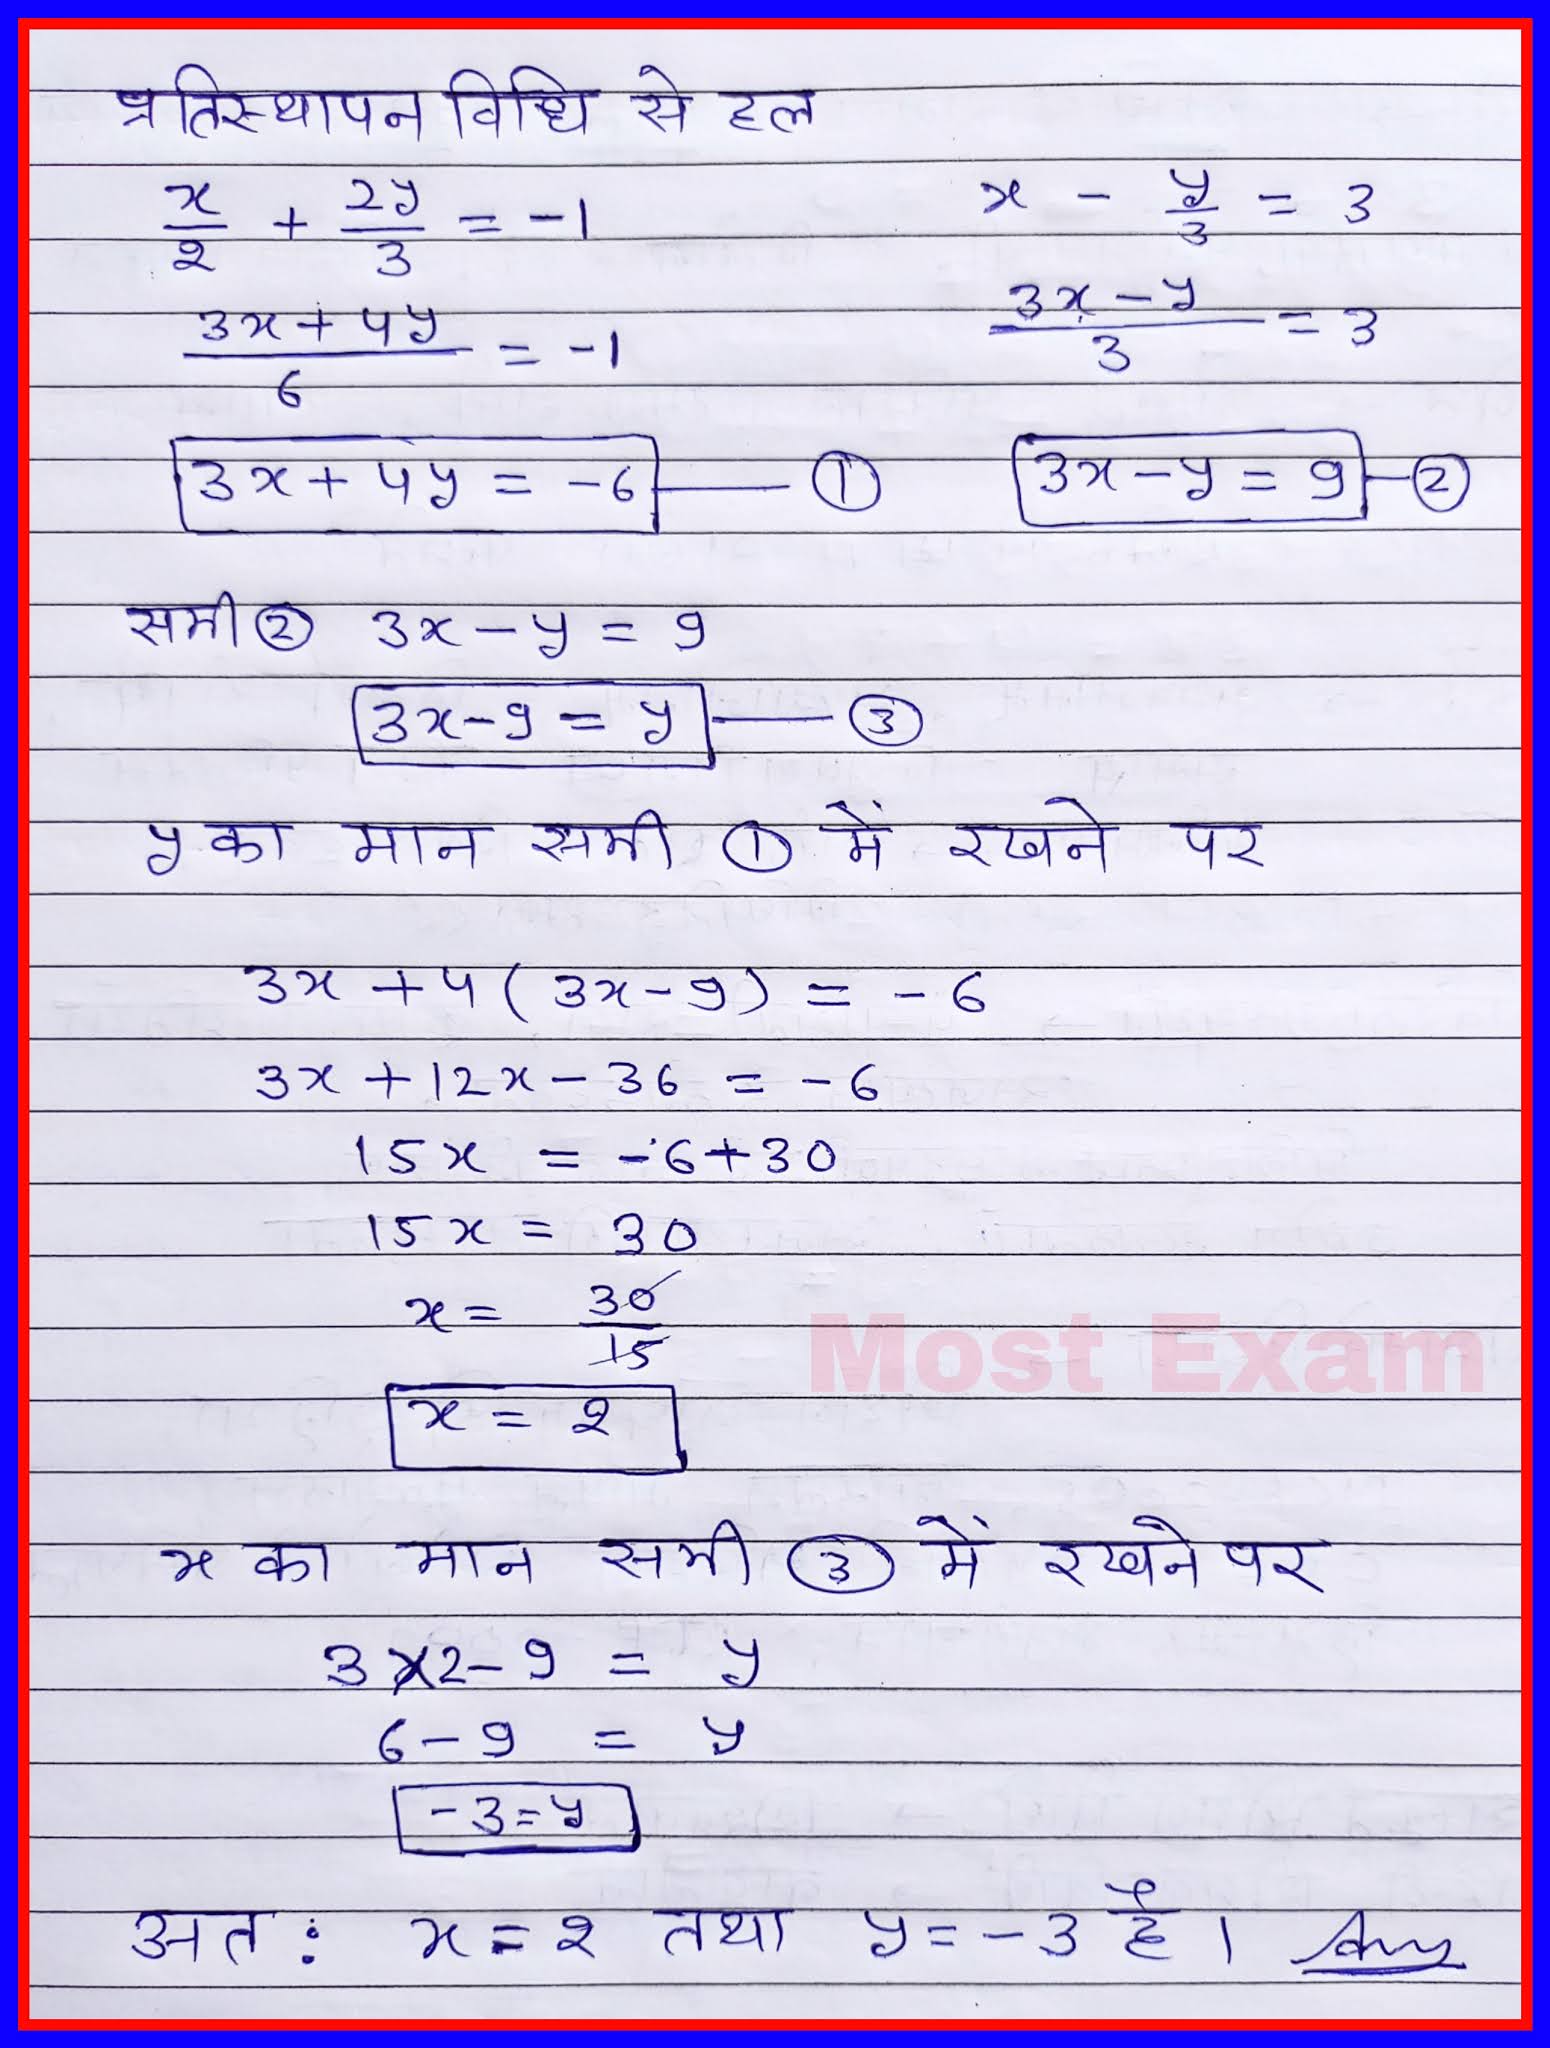 प्रतिस्थापन विधि से हल
x/2 + 2y/3 = -1    x - y/3 = 3
(3x + 4y)/6 = -1    (3x - y)/3 = 3
3x + 4y = -6 —— ①    3x - y = 9 — ②
समी ② 3x - y = 9
3x - 9 = y —— ③
y का मान समी ① में रखने पर
3x + 4 ( 3x - 9 ) = - 6
3x + 12x - 36 = - 6
15x = -6+30
15x = 30
x = 30/15
Most Exam
x = 2
x का मान समी ③ में रखने पर
3×2 - 9 = y
6 - 9 = y
-3 = y
अत: x = 2 तथा y = -3 है । Ans